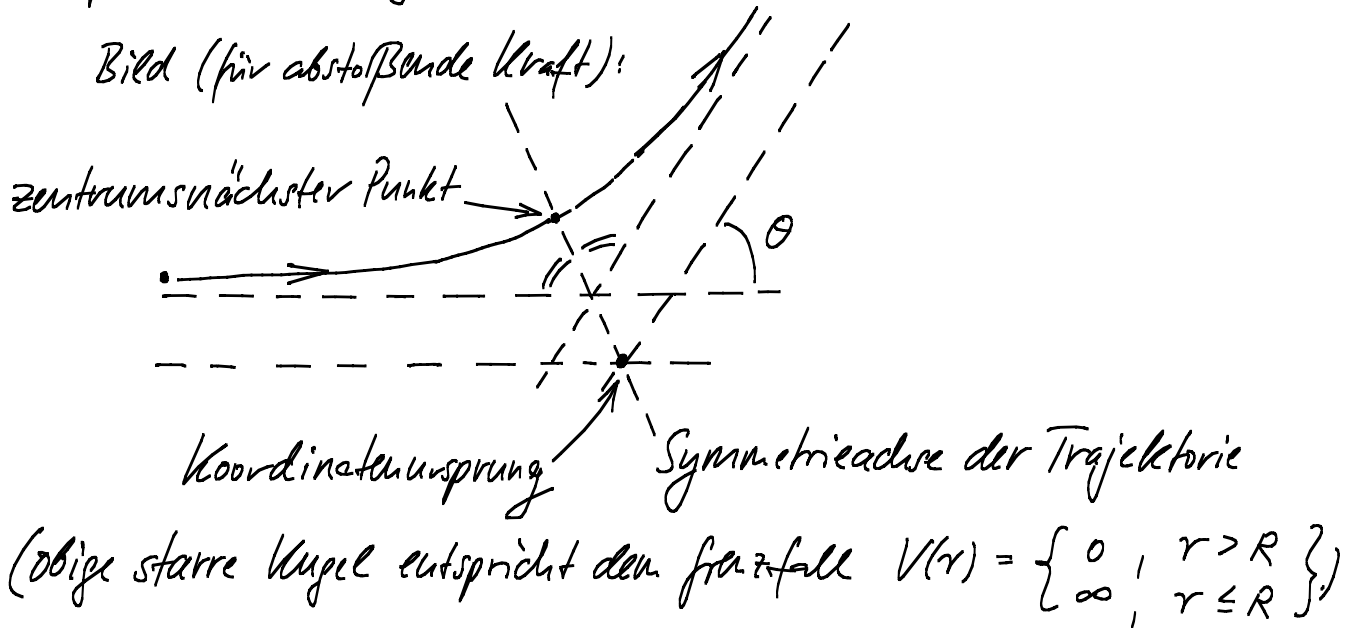 Bild (für abstoßende Kraft):
zentrumsnächster Punkt
θ
Koordinatenursprung
Symmetrieachse der Trajektorie
(Obige starre Kugel entspricht dem Grenzfall V(r) = { 0 , r > R
∞ , r ≤ R }.)